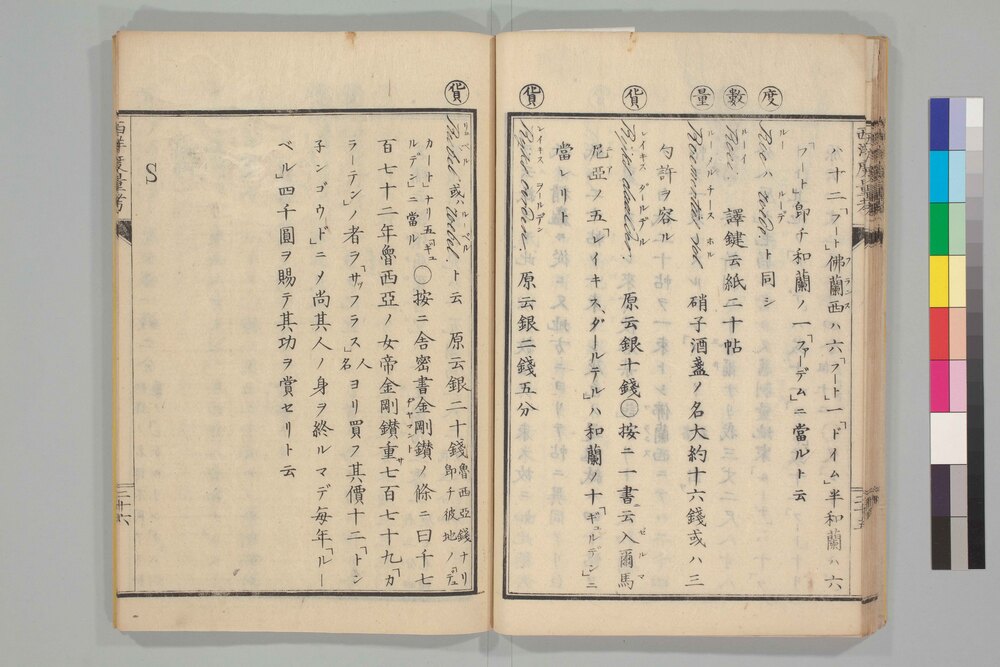 ハ十二「フート」佛蘭西ハ六「フート」一「ドイム」半和蘭ハ六
フラニス
「フート」卽チ和蘭ノ一「ファーデム」ニ當ルト云
度
ルー
ルーデ
Roe ハ roede ト同シ
數
ルーイ
譯鍵云紙二十帖
量
ルーノルチース
ホル
硝子酒盞ノ名大約十六錢或ハ三
勺許ヲ容ル
貨
レイキスダールデル
原云銀十錢〇按ニ一書云入爾馬
ゼルマ
尼亞ノ五「レイキス、ダールテル」ハ和蘭ノ十「ギュルデン」ニ
當レリト
貨
レイキスヲールデン
原云銀二錢五分
西洋度量考
三十五
貨
或 ト云 原云銀二十錢魯西亞錢ナリ
卽チ彼地ノ「デュ
カート」ナリ五「ギュ
ルデン」ニ當ル
〇按ニ舎密書金剛鑚ノ條ニ曰千七
ヂヤマント
百七十二年魯西亞ノ女帝金剛鑚重サ七百七十九「カ
ラーテン」ノ者ヲ「サッフラス」人名ヨリ買フ其價十二「トン
子ンゴウド」ニメ尚其人ノ身ヲ終ルマデ每年「ルー
ベル」四千圓ヲ賜テ其功ヲ賞セリト云
S
西洋度量考
三十六